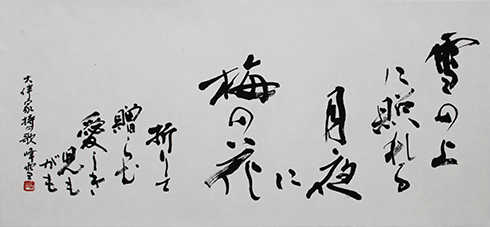 雪の上
に照れる
月夜
に
梅の花
折りて
贈らむ
愛しき
児も
がも
大伴家持歌